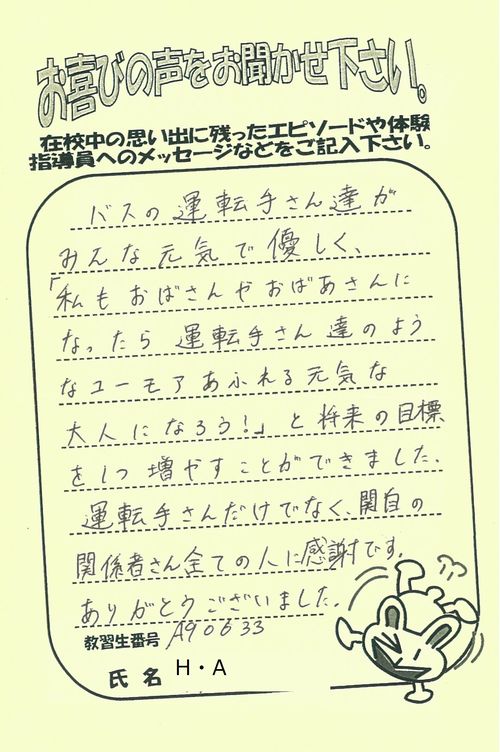 お喜びの声をお聞かせ下さい。
在校中の思い出に残ったエピソードや体験
指導員へのメッセージなどをご記入下さい。
バスの運転手さん達が
みんな元気で優しく、
「私もおばさんやおばあさんに
なったら運転手さん達のよう
なユーモアあふれる元気な
大人になろう!」と将来の目標
を1つ増やすことができました。
運転手さんだけでなく、関自の
関係者さん全ての人に感謝です。
ありがとうございました。
教習生番号 A90633
氏名 H・A